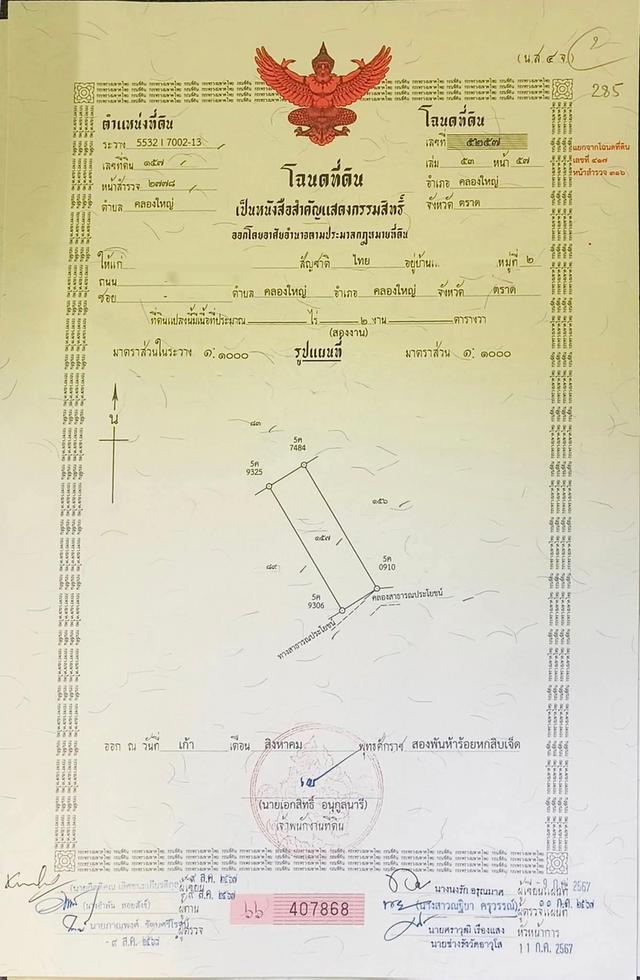 (น.ส.๔ จ.)
2
285
ตำแหน่งที่ดิน
โฉนดที่ดิน
ระวาง 5532 I 7002-13
เลขที่ ๕๒๕๗
เลขที่ดิน ๑๕๗
เล่ม ๕๓ หน้า ๕๗
แยกจากโฉนดที่ดิน
เลขที่ ๔๑๗
หน้าสำรวจ ๓๑๖
หน้าสำรวจ ๒๗๗๘
อำเภอ คลองใหญ่
ตำบล คลองใหญ่
จังหวัด ตราด
โฉนดที่ดิน
เป็นหนังสือสำคัญแสดงกรรมสิทธิ์
ออกโดยอาศัยอำนาจตามประมวลกฎหมายที่ดิน
ให้แก่ สัญชาติ ไทย อยู่บ้านเ หมู่ที่ ๒
ถนน
ซอย - ตำบล คลองใหญ่ อำเภอ คลองใหญ่ จังหวัด ตราด
ที่ดินแปลงนี้มีเนื้อที่ประมาณ ไร่ ๒ งาน ตารางวา
(สองงาน)
มาตราส่วนในระวาง ๑: ๑๐๐๐ รูปแผนที่ มาตราส่วน ๑: ๑๐๐๐
น
๘๓
5ค
7484
5ค
9325
๑๕๖
๑๕๗
๘๙
5ค
0910
5ค
9306
คลองสาธารณประโยชน์
ทางสาธารณประโยชน์
ออก ณ วันที่ เก้า เดือน สิงหาคม พุทธศักราช สองพันห้าร้อยหกสิบเจ็ด
(นายเอกสิทธิ์ อนุกูลนารี)
เจ้าพนักงานที่ดิน
๙ ส.ค. ๒๕๖๗
ผู้เขียน
ผู้ทาน
ผู้ตรวจ
๙ ส.ค. ๒๕๖๗
๖๖ 407868
นางนงรัก อรุณมาศ ผู้เขียนแผนที่
ก.ค. 2567
ผู้ตรวจแผนที่
นายศราวุฒิ เรืองแสง หัวหน้าการ
นายช่างรังวัดอาวุโส 11 ก.ค. 2567